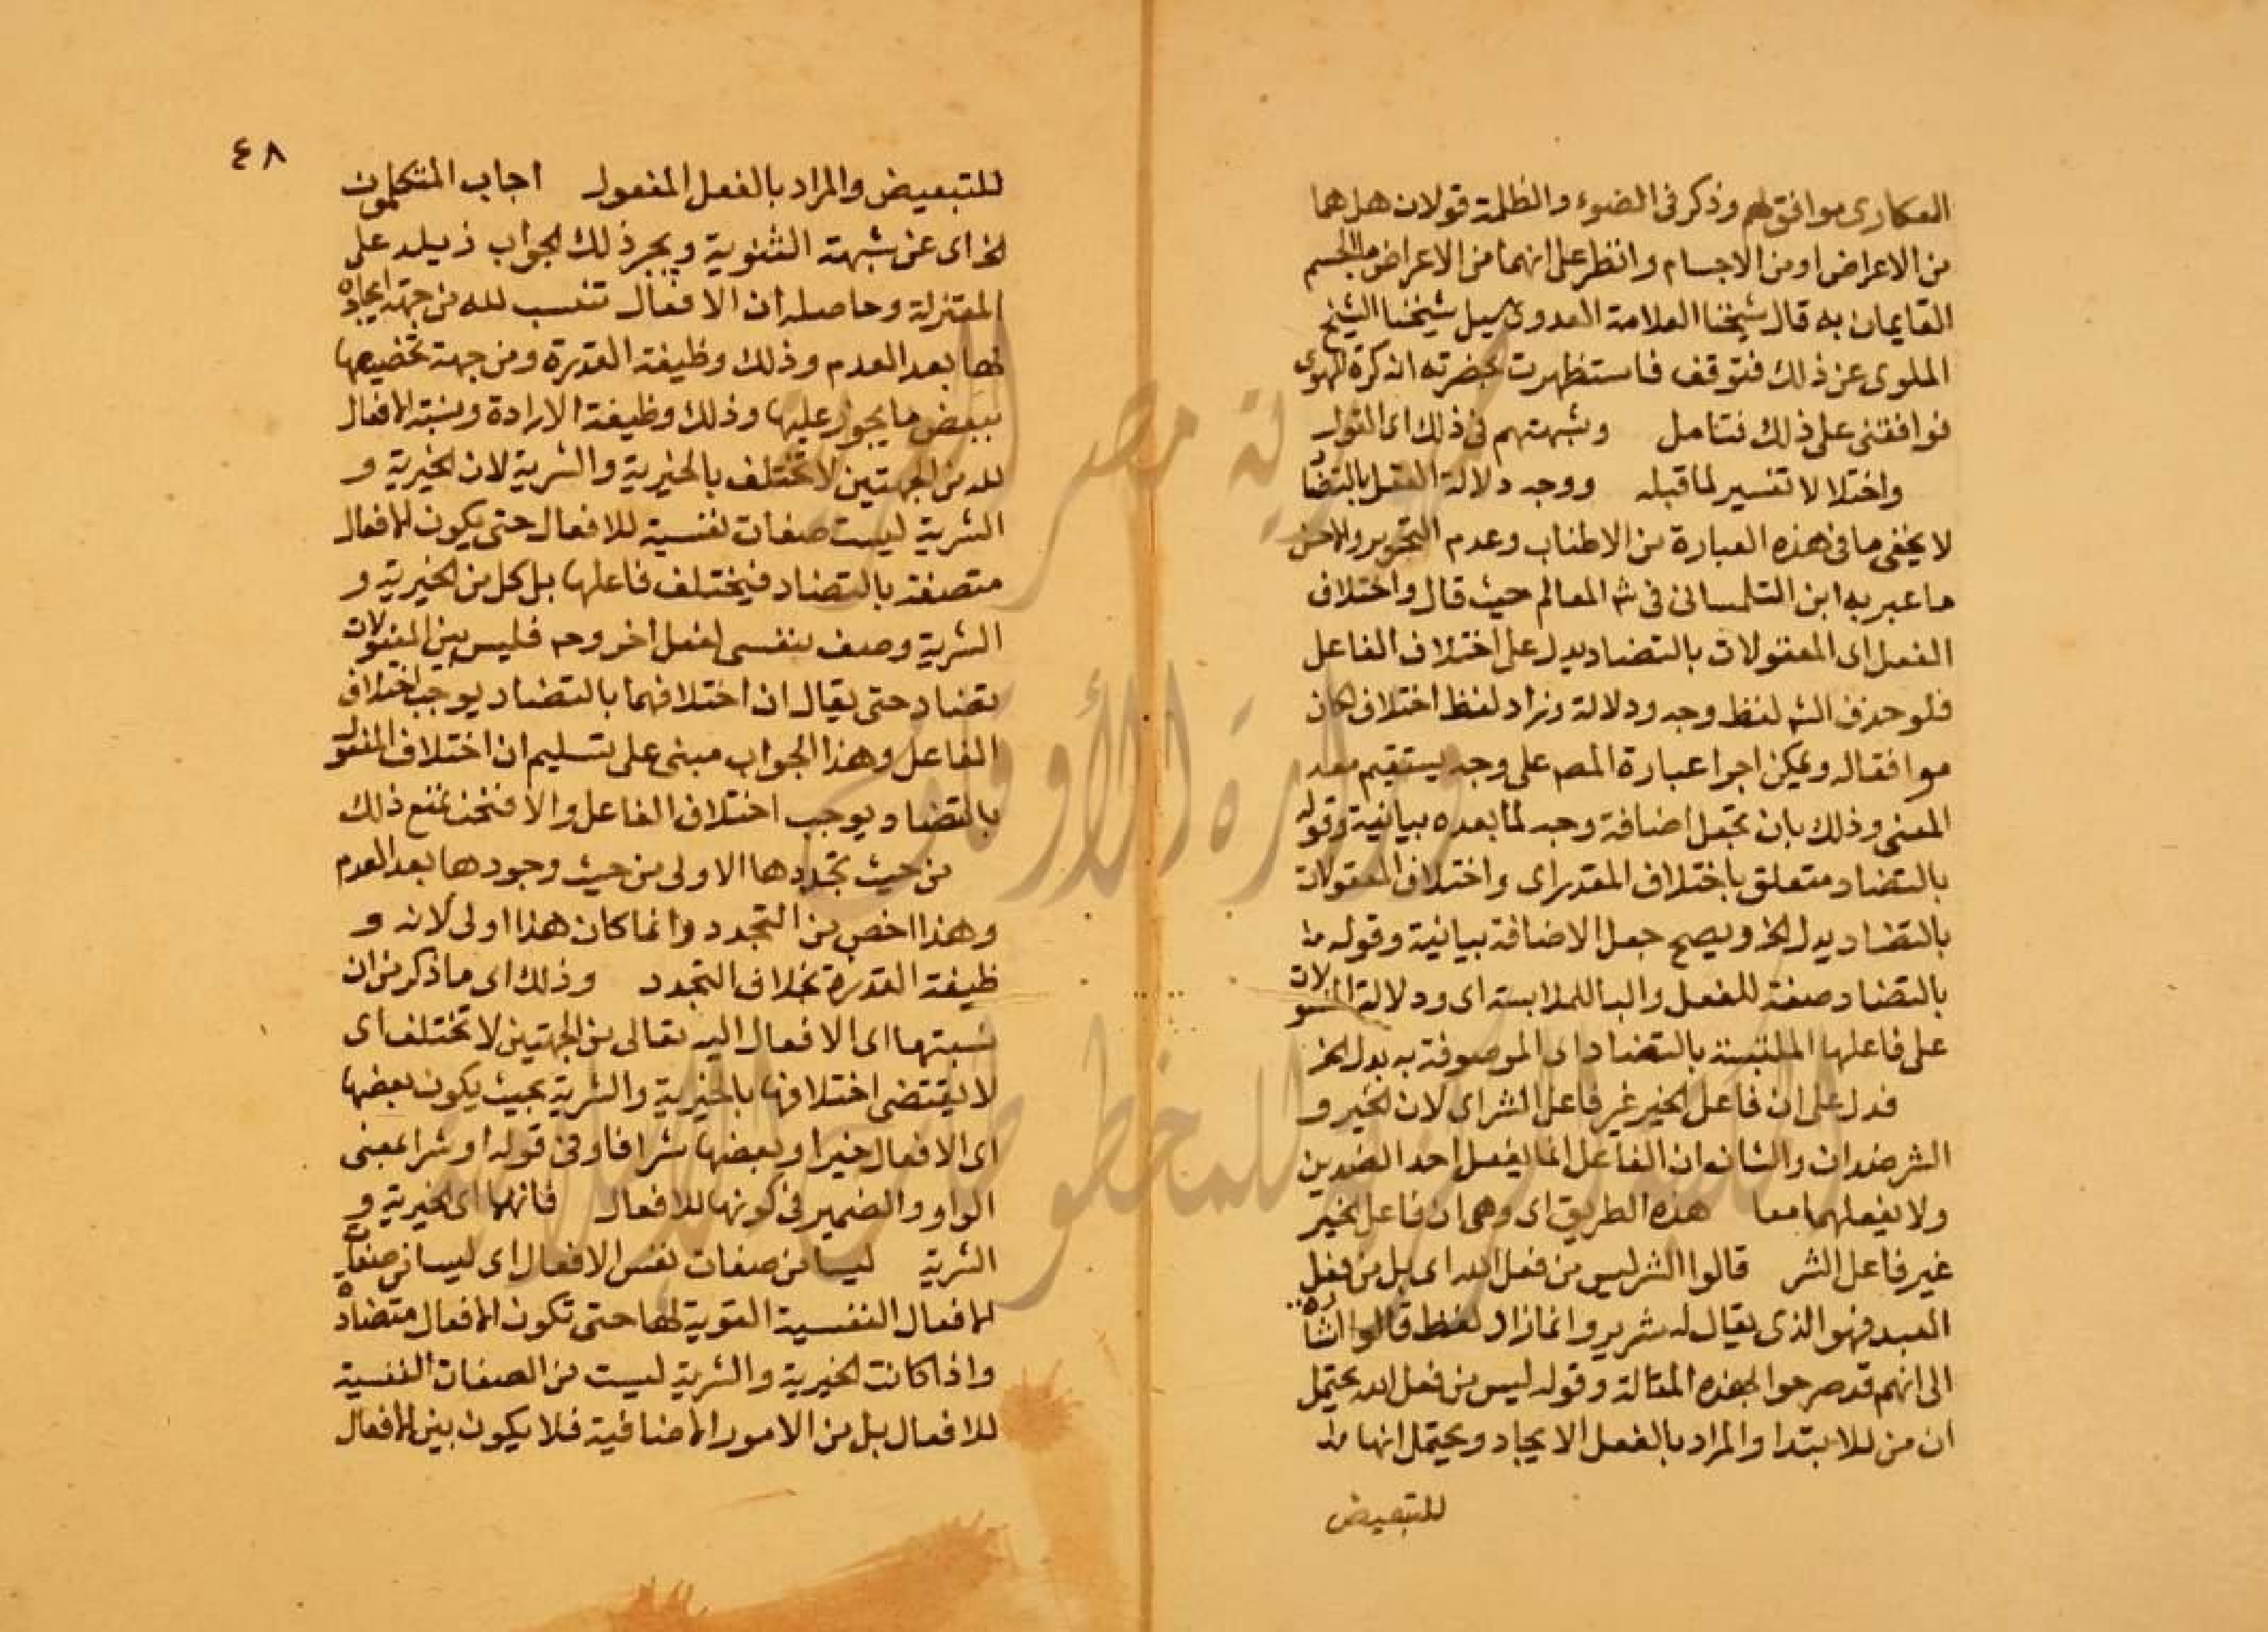 العكارى موافق لهم وذكر فى الضوء والظلمة قولان هل هما
من الاعراض او من الاجسام وانظر على انهما من الاعراض ما الجسم
القايمان به قال شيخنا العلامة العدوى سيل شيخنا الشيخ
الملوى عن ذلك فتوقف فاستظهرت بحضرته انه كرة الهوى
فوافقنى على ذلك فتامل وشبهتهم فى ذلك اى القول
واختلالا تفسير لما قبله ووجه دلالة الفعل بالتضا
لا يخفى ما فى هذه العبارة من الاطناب وعدم التحرير والاحسن
ما عبر به ابن التلمسانى فى شه المعالم حيث قال واختلاف
الفعل اى المفعولات بالتضاد يدل على اختلاف الفاعل
فلو حذف الشه لفظ وجه ودلالة وزاد لفظ اختلاف لكان
موافقا له ويمكن اجرا عبارة المص على وجه يستقيم معه
المعنى وذلك بان تجعل اضافة وجه لما بعده بيانية وقوله
بالتضاد متعلق باختلاف المقدر اى واختلاف المفعولات
بالتضاد يدل الخ ويصح جعل الاضافة بيانية وقوله
بالتضاد صفة للفعل والبا للملابسة اى ودلالة المفعولات
على فاعلها الملتبسة بالتضاد اى الموصوفة به يدل الخ
فدل على ان فاعل الخير غير فاعل الشر اى لان الخير و
الشر ضدان والشان ان الفاعل انما يفعل احد الضدين
ولا يفعلهما معا هذه الطريق اى وهى ان فاعل الخير
غير فاعل الشر قالوا الشر ليس من فعل الله اى بل من فعل
العبد فهو الذى يقال له شرير وانما زاد لفظ قالوا اشارة
الى انهم قد صرحوا بهذه المقالة وقوله ليس من فعل الله يحتمل
ان من للابتدا والمراد بالفعل الايجاد ويحتمل انها
للتبعيض
٤٨
للتبعيض والمراد بالفعل المفعول اجاب المتكلمون
الخ اى عن شبهة الثنوية ويجر ذلك الجواب ذيله على
المعتزلة وحاصله ان الافعال تنسب لله من جهة ايجاده
لها بعد العدم وذلك وظيفة القدرة ومن جهة تخصيصها
ببعض ما يجوز عليها وذلك وظيفة الارادة ونسبة الافعال
لله من الجهتين لا تختلف بالخيرية والشرية لان الخيرية و
الشرية ليست صفات نفسية للافعال حتى يكون الافعال
متصفة بالتضاد فيختلف فاعلها بل كل من الخيرية و
الشرية وصف نفسى لفعل اخر وحـ فليس بين المفعولات
تضاد حتى يقال ان اختلافهما بالتضاد يوجب اختلاف
الفاعل وهذا الجواب مبنى على تسليم ان اختلاف المفعول
بالتضاد يوجب اختلاف الفاعل والا فنحن نمنع ذلك
من حيث تجددها الاولى من حيث وجودها بعد العدم
وهذا اخص من التجدد وانما كان هذا اولى لانه و
ظيفة القدرة بخلاف التجدد وذلك اى ما ذكر من ان
نسبتها اى الافعال اليه تعالى من الجهتين لا تختلف اى
لا يقتضى اختلافها بالخيرية والشرية بحيث يكون بعضها
اى الافعال خيرا وبعضها شرا فاو فى قوله او شرا بمعنى
الواو والضمير فى كونها للافعال فانهما اى الخيرية و
الشرية ليسا من صفات نفس الافعال اى ليسا من صفات
الافعال النفسية القوية لها حتى تكون الافعال متضادة
واذا كانت الخيرية والشرية ليست من الصفات النفسية
للافعال بل من الامور الاضافية فلا يكون بين الافعال